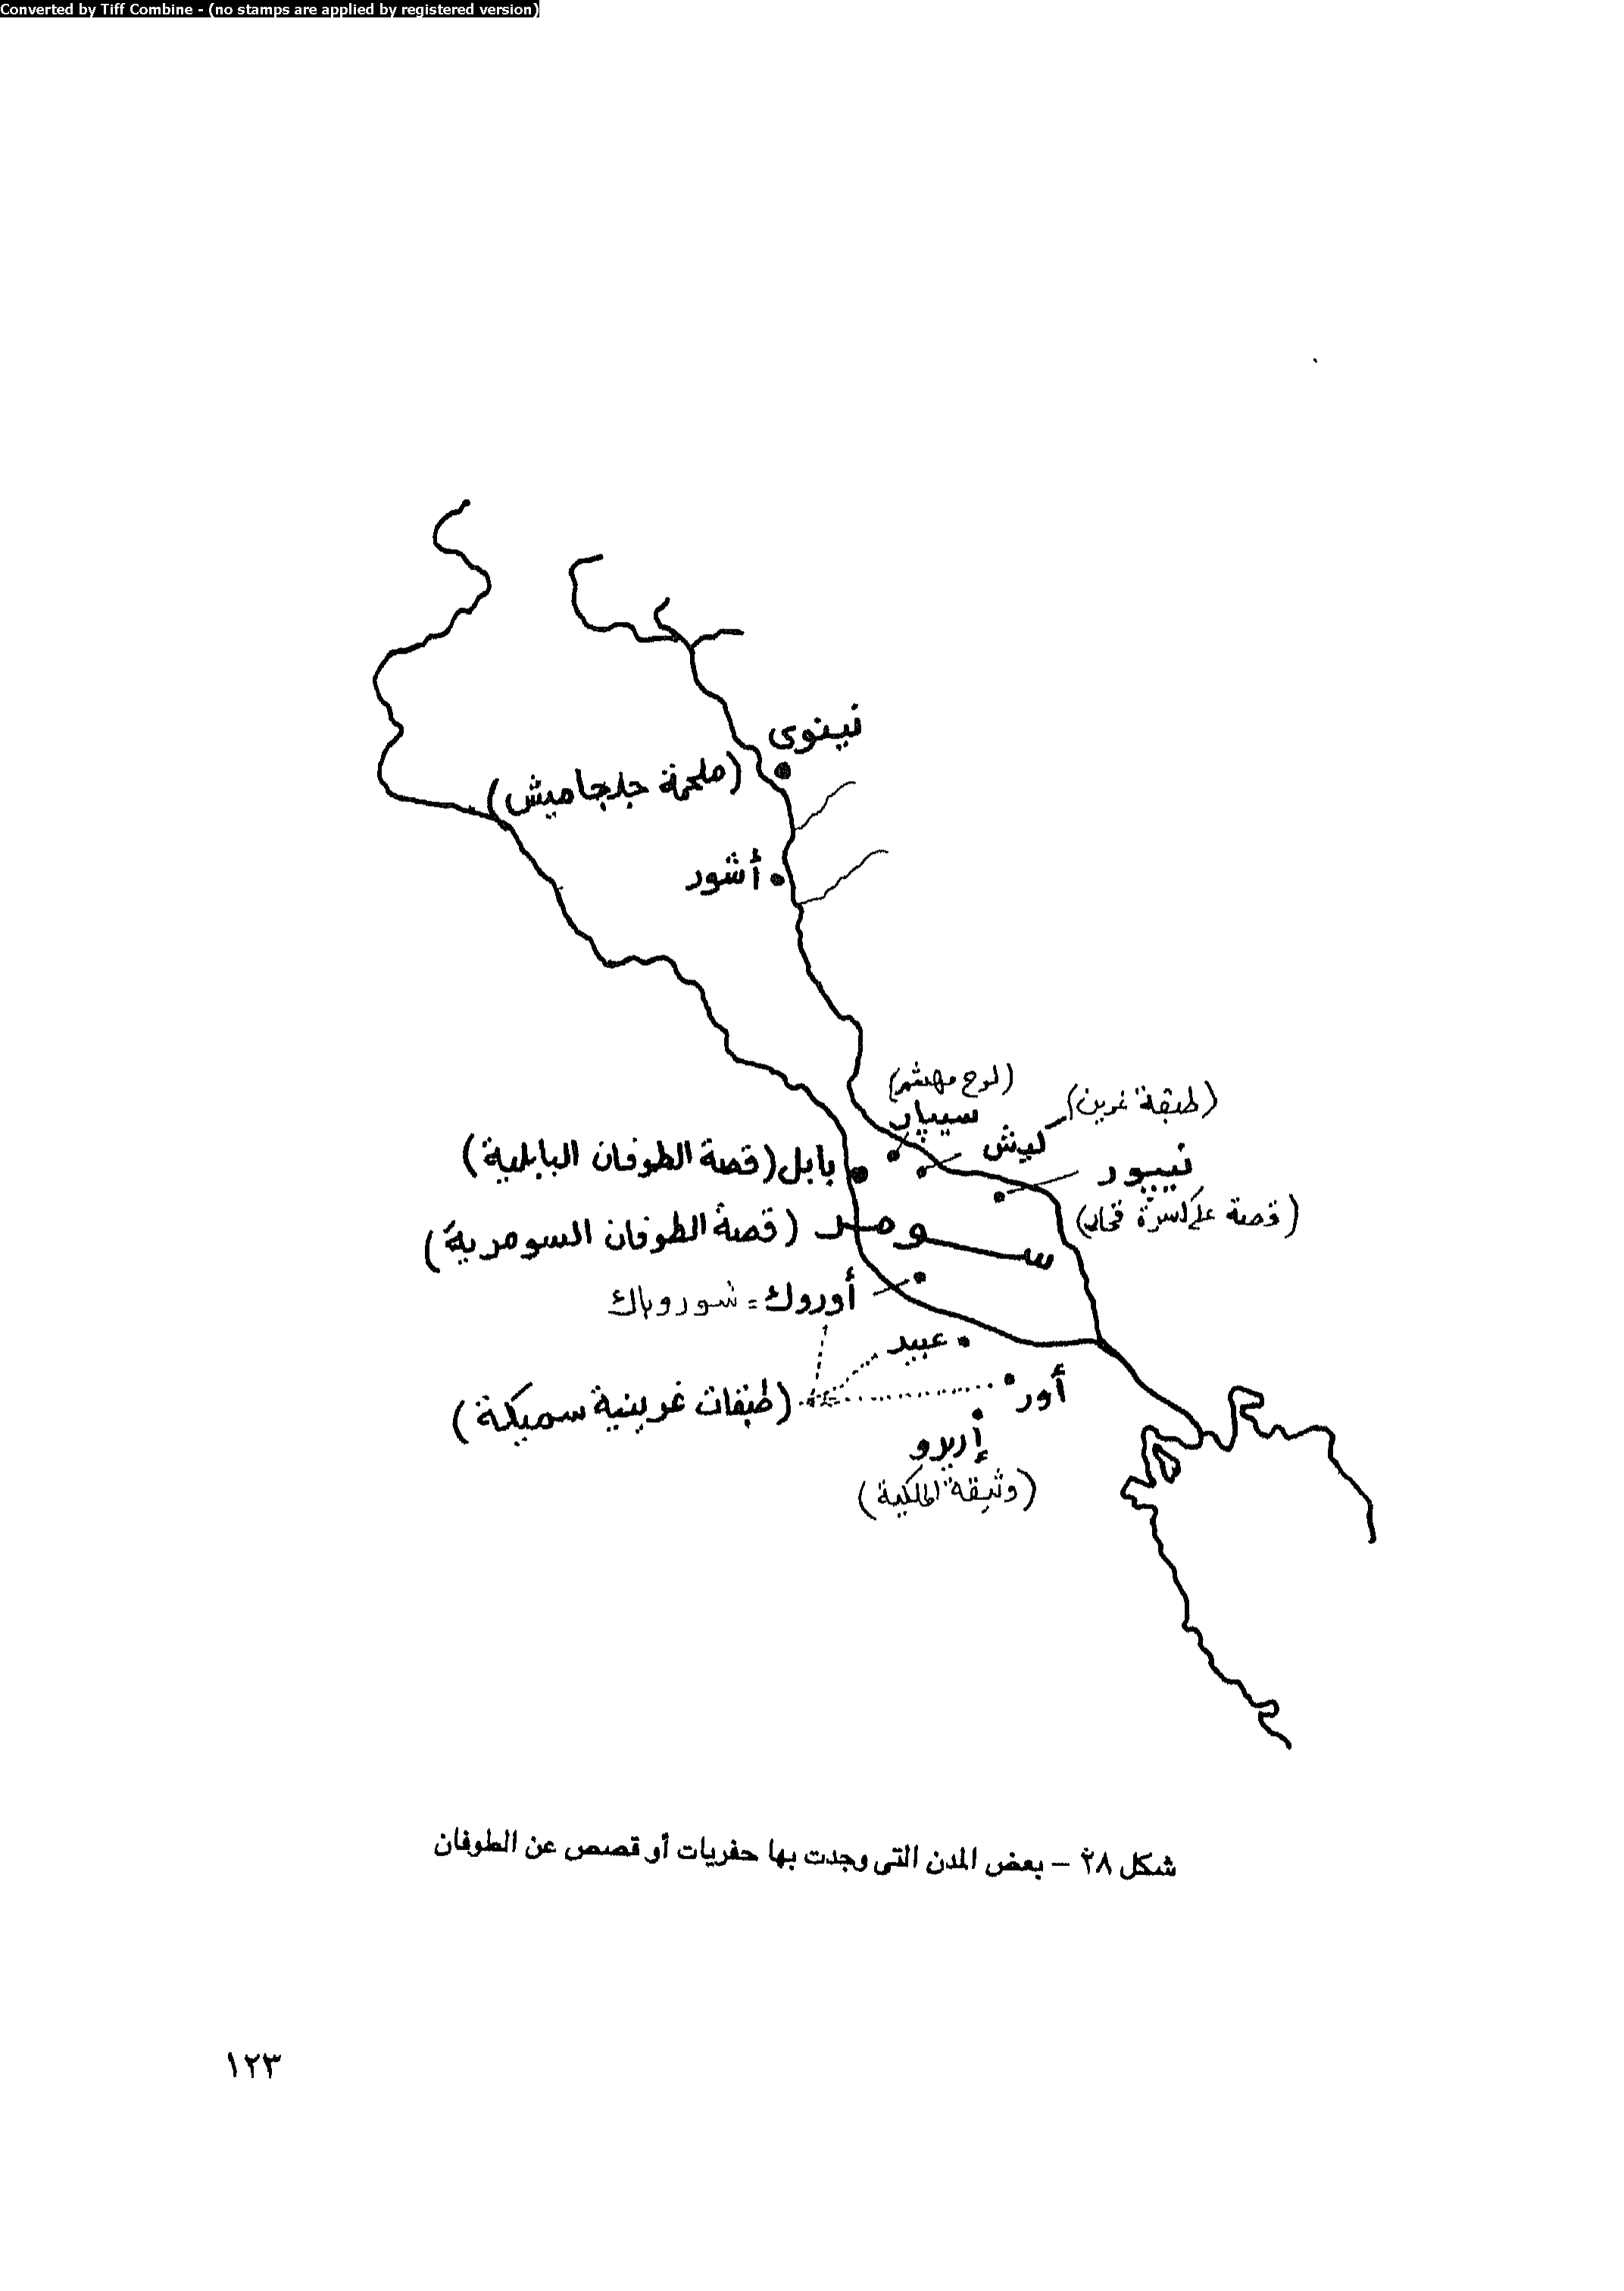 Converted by Tiff Combine - (no stamps are applied by registered version)
نينوى
(ملحمة جلجاميش)
أشور
(لوح مهشم)
سيپار
(طبقة غرين)
ليش
نيپور
(قصة على كسرة فخار)
بابل (قصة الطوفان البابلية)
سومر (قصة الطوفان السومرية)
أوروك = شوروباك
عبيد
أور
(طبقات غرينية سميكة)
إريدو
(وثيقة الملكية)
شكل ٢٨ – بعض المدن التى وجدت بها حفريات أو قصص عن الطوفان
١٢٣